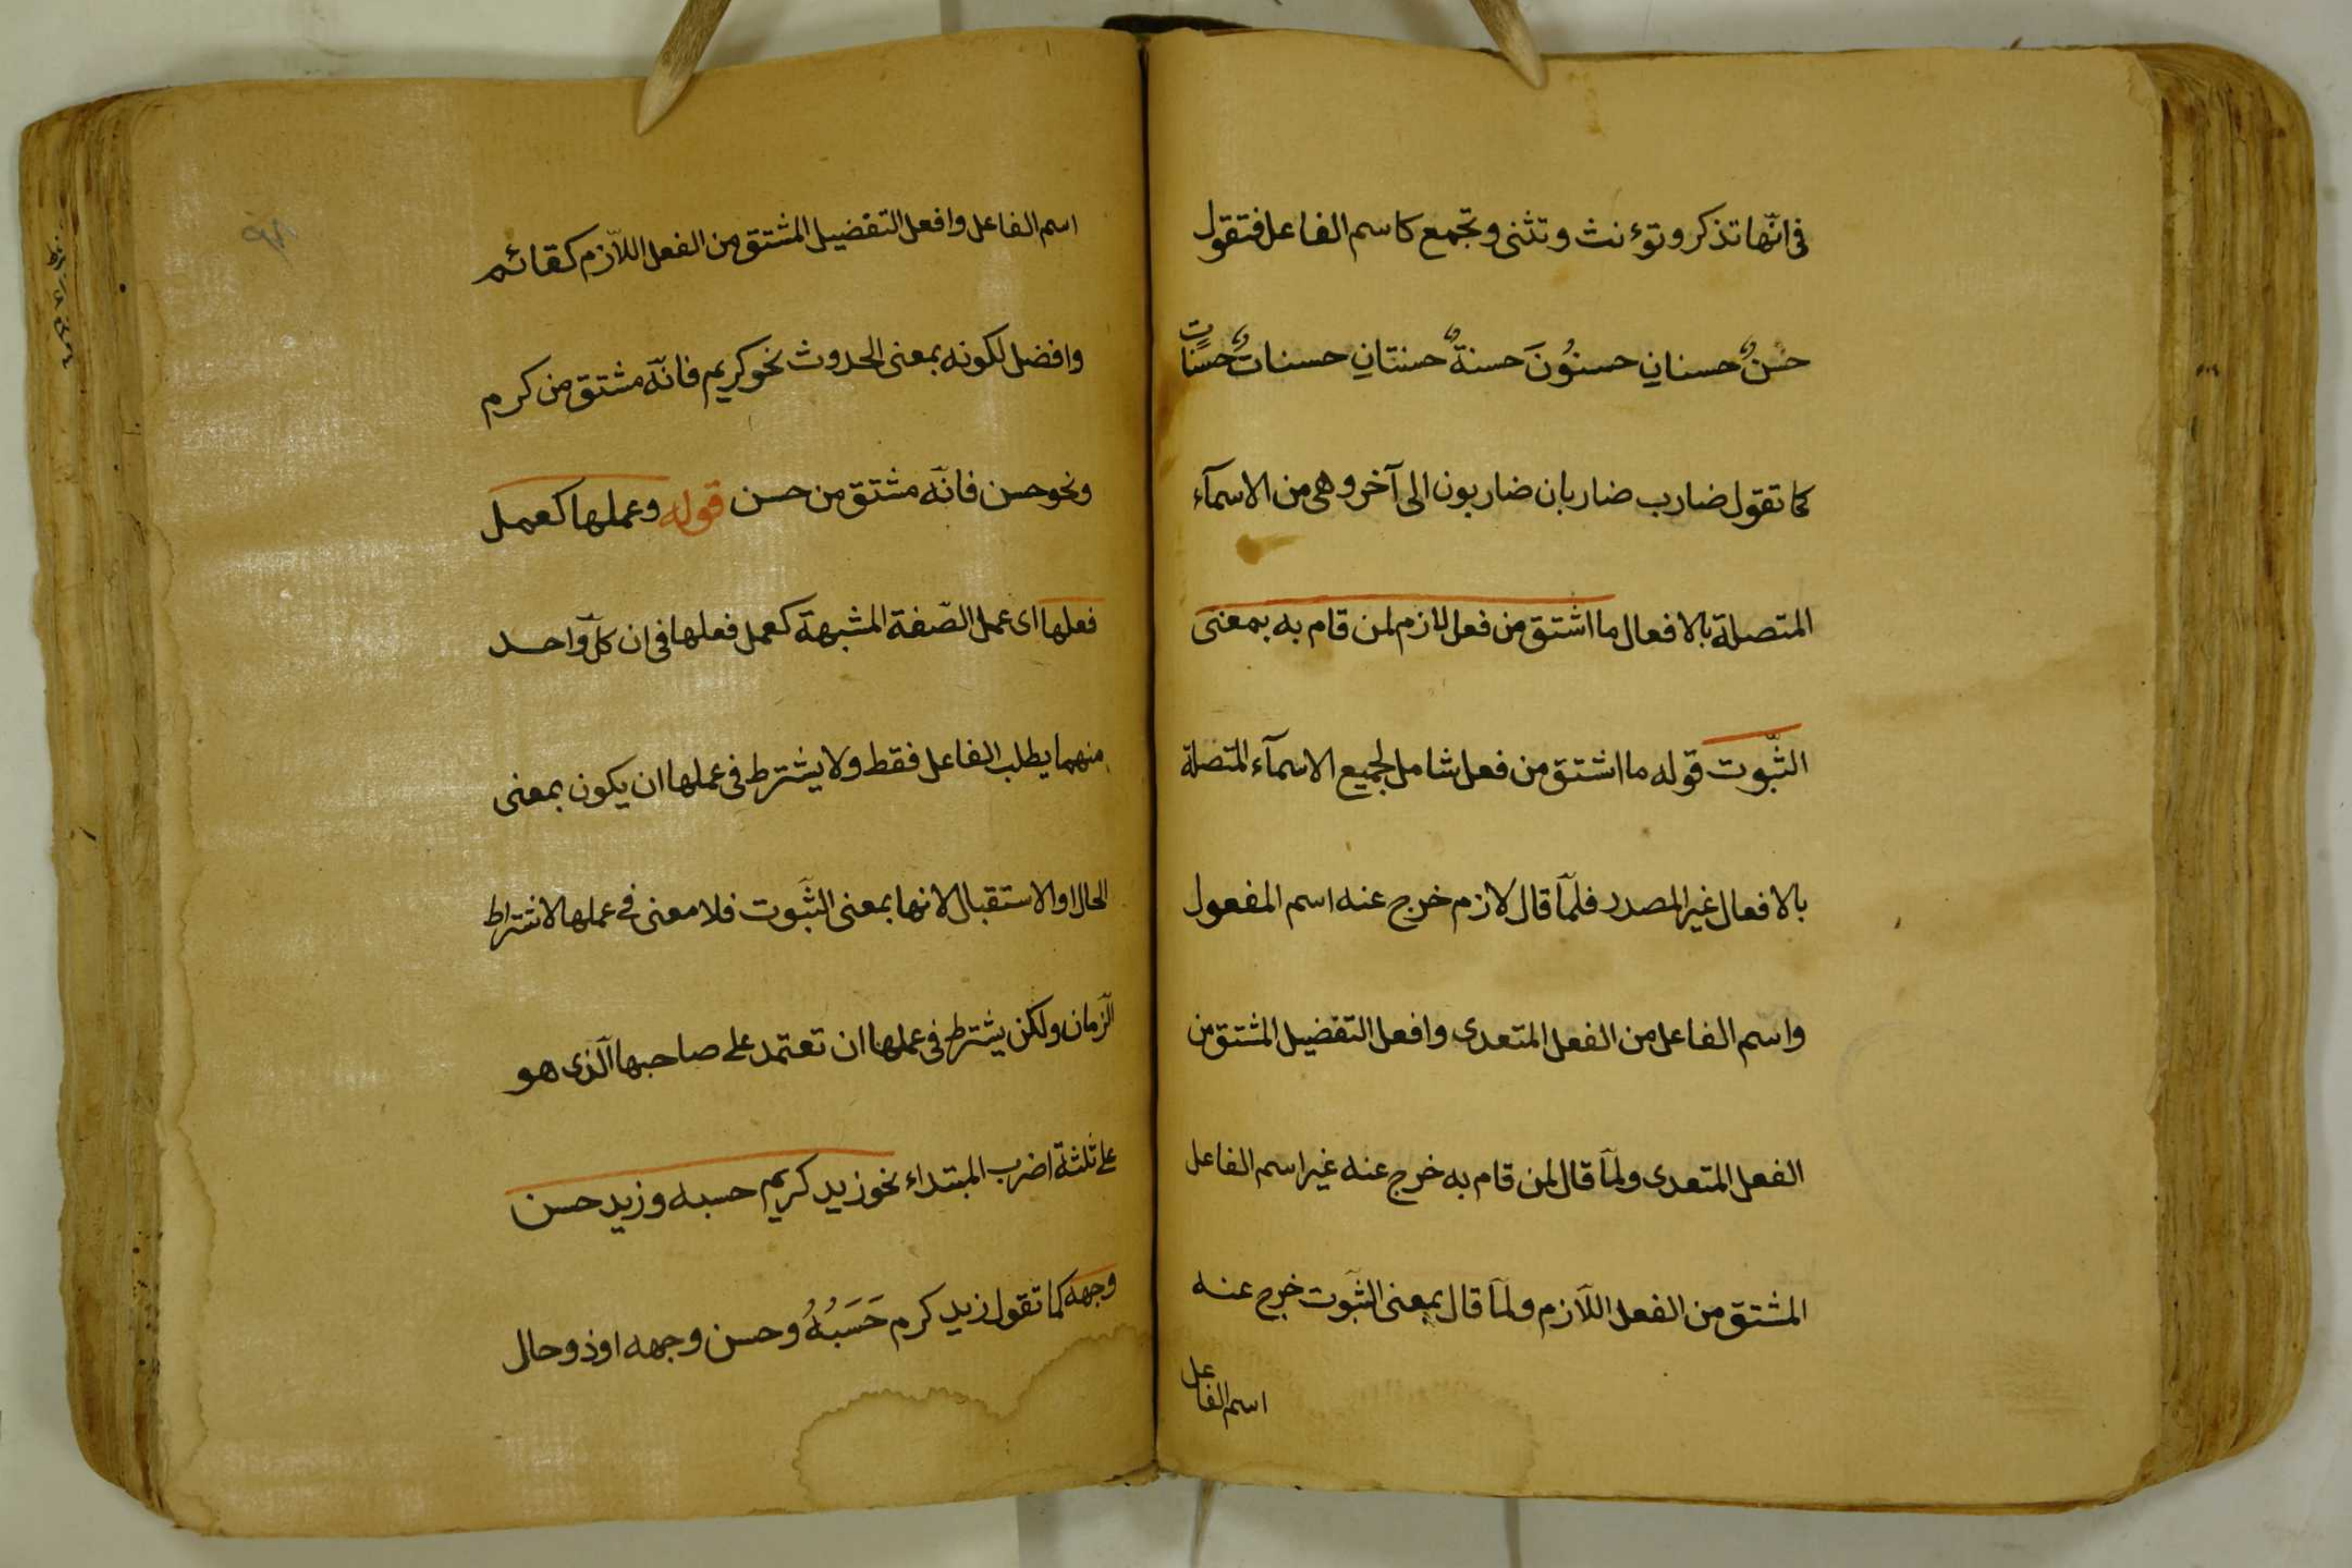 فى انّها تذكر و تؤنث و تثنى و تجمع كاسم الفاعل فتقول
حسنٌ حسنانِ حسنُونَ حسنةٌ حسنتانِ حسناتٌ
كما تقول ضارب ضاربان ضاربون الى آخر وهى من الاسمآء
المتصلة بالافعال ما اشتق من فعل لازم لمن قام به بمعنى
الثّبوت قوله ما اشتق من فعل شامل لجميع الاسمآء المتصلة
بالافعال غير المصدر فلمّا قال لازم خرج عنه اسم المفعول
واسم الفاعل من الفعل المتعدى وافعل التفضيل المشتق من
الفعل المتعدى ولمّا قال لمن قام به خرج عنه غير اسم الفاعل
المشتق من الفعل اللّازم ولمّا قال بمعنى الثّبوت خرج عنه
اسم الفاعل
اسم الفاعل وافعل التفضيل المشتق من الفعل اللّازم كقائم
وافضل لكونه بمعنى الحدوث نحو كريم فانّه مشتق من كرم
ونحو حسن فانّه مشتق من حسن قوله وعملها كعمل
فعلها اى عمل الصّفة المشبهة كعمل فعلها فى ان كلّ واحد
منهما يطلب الفاعل فقط ولا يشترط فى عملها ان يكون بمعنى
الحال او الاستقبال لانها بمعنى الثّبوت فلا معنى فى عملها لاشتراط
الزّمان ولكن يشترط فى عملها ان تعتمد على صاحبها الّذى هو
على ثلثة اضرب المبتداء نحو زيد كريم حسبه وزيد حسن
وجهه كما تقول زيد كرم حَسَبُهُ وحسن وجهه او ذو حال